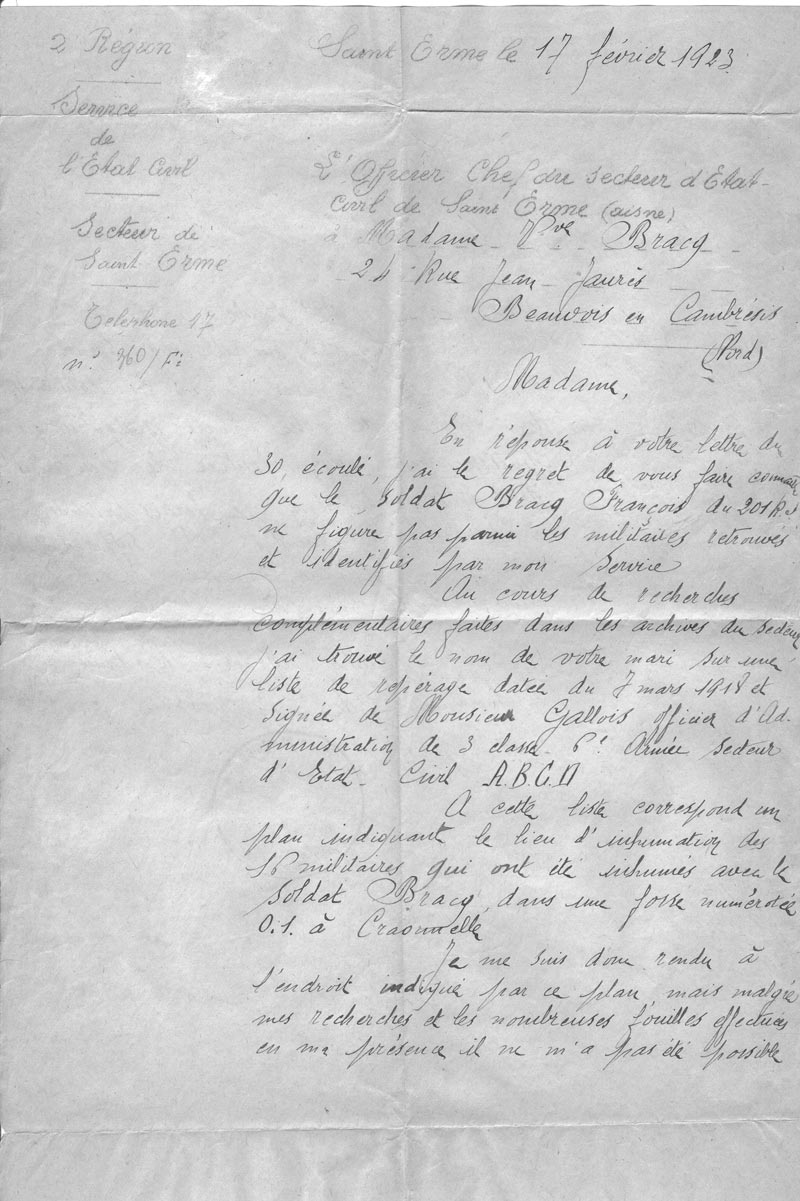 2 Région
Saint Erme le 17 février 1923
Service
de
l'Etat Civil
Secteur de
Saint Erme
Téléphone 17
n° 360/Fi
L'Officier Chef du secteur d'Etat-
Civil de Saint Erme (aisne)
à Madame Vve Bracq
24 Rue Jean-Jaurès
Beauvois en Cambrésis
(Nord)
Madame,
En réponse à votre lettre du
30 écoulé, j'ai le regret de vous faire connaitre
que le soldat Bracq François du 201 R.I
ne figure pas parmi les militaires retrouvés
et identifiés par mon Service
Au cours de recherches
complémentaires faites dans les archives du secteur
j'ai trouvé le nom de votre mari sur une
liste de repérage datée du 7 mars 1918 et
signée de Monsieur Gallois officier d'Ad-
ministration de 3 classe 6e Armée secteur
d'Etat-Civil A.B.C.D
A cette liste correspond un
plan indiquant le lieu d'inhumation des
16 militaires qui ont été inhumés avec le
soldat Bracq, dans une fosse numérotée
0.1. à Craonnelle
Je me suis donc rendu à
l'endroit indiqué par ce plan mais malgré
mes recherches et les nombreuses fouilles effectuées
en ma présence il ne m'a pas été possible